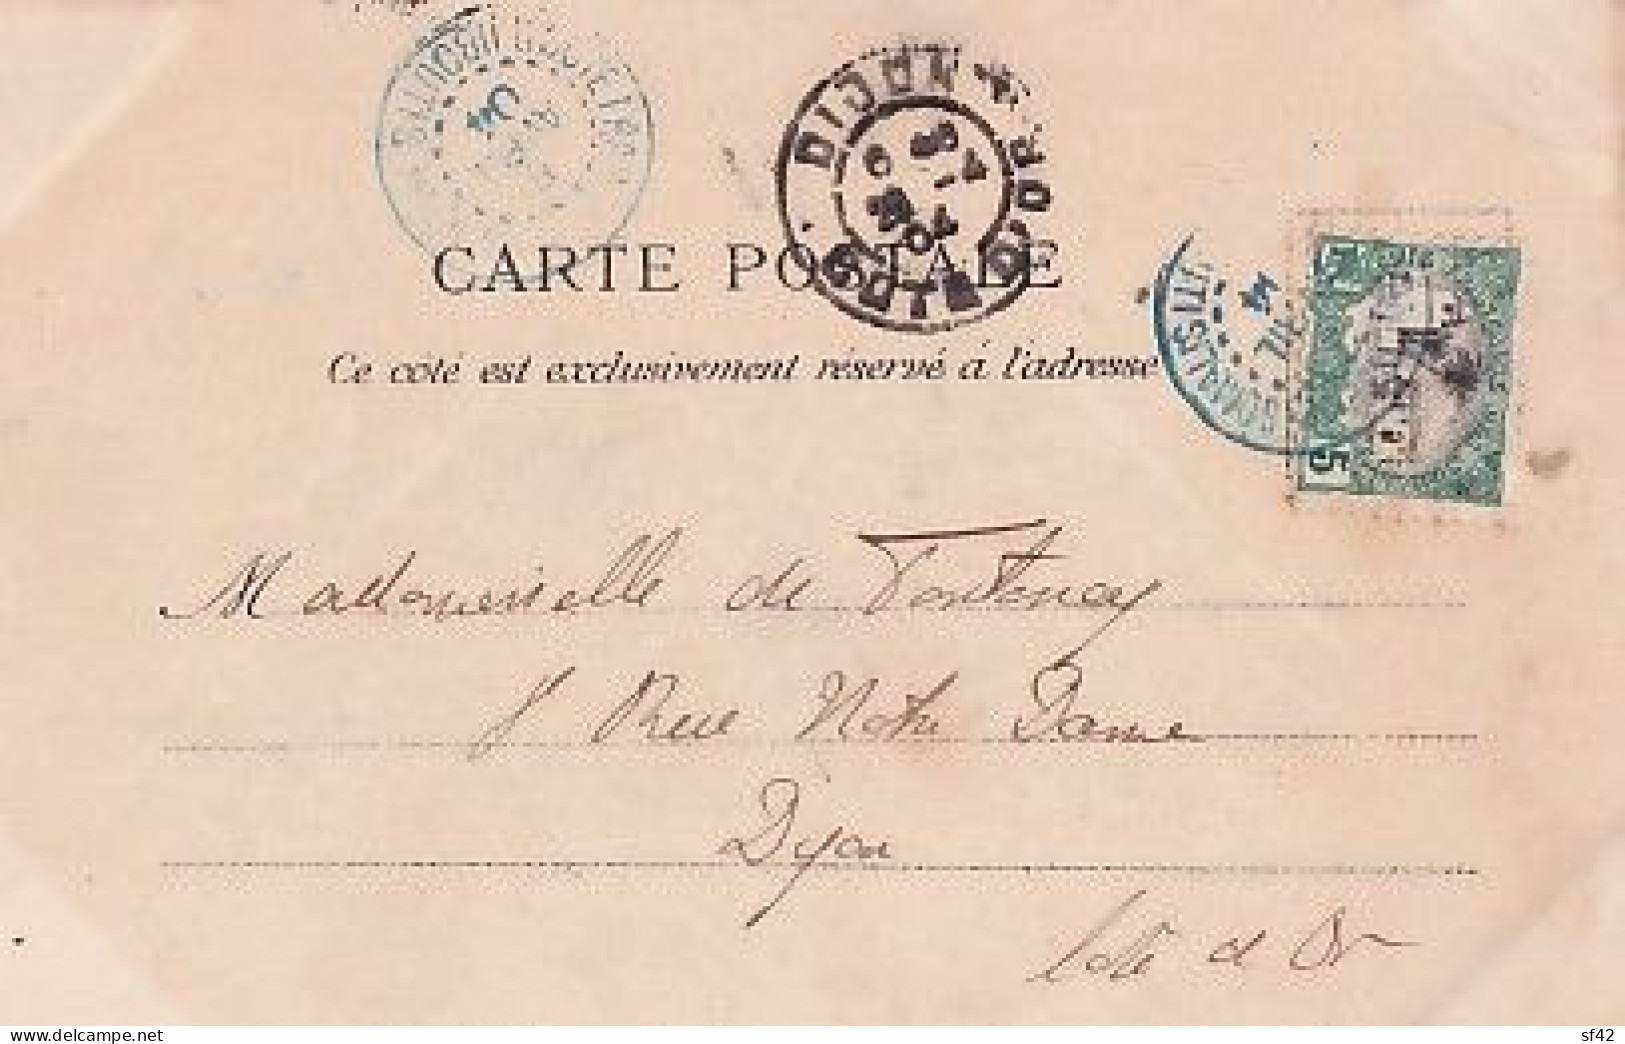 DIJON
CÔTE D'OR
04
CARTE POSTALE
Ce côté est exclusivement réservé à l'adresse
5
Mademoiselle de Fontenay
8 Rue Notre Dame
Dijon
Côte d'Or
www.delcampe.net
sf42